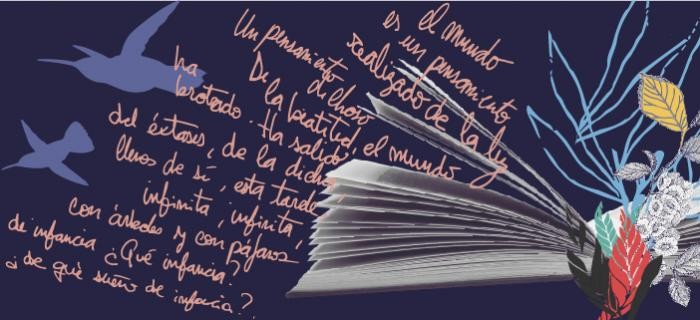 el mundo
es un pensamiento
realizado de la luz
Un pensamiento
dichoso
De la beatitud, el mundo
ha
brotado. Ha salido
del éxtasis, de la dicha,
llenos de sí, esta tarde,
infinita, infinita,
con árboles y con pájaros
de infancia ¿Qué infancia?
¿de qué sueño de infancia?.